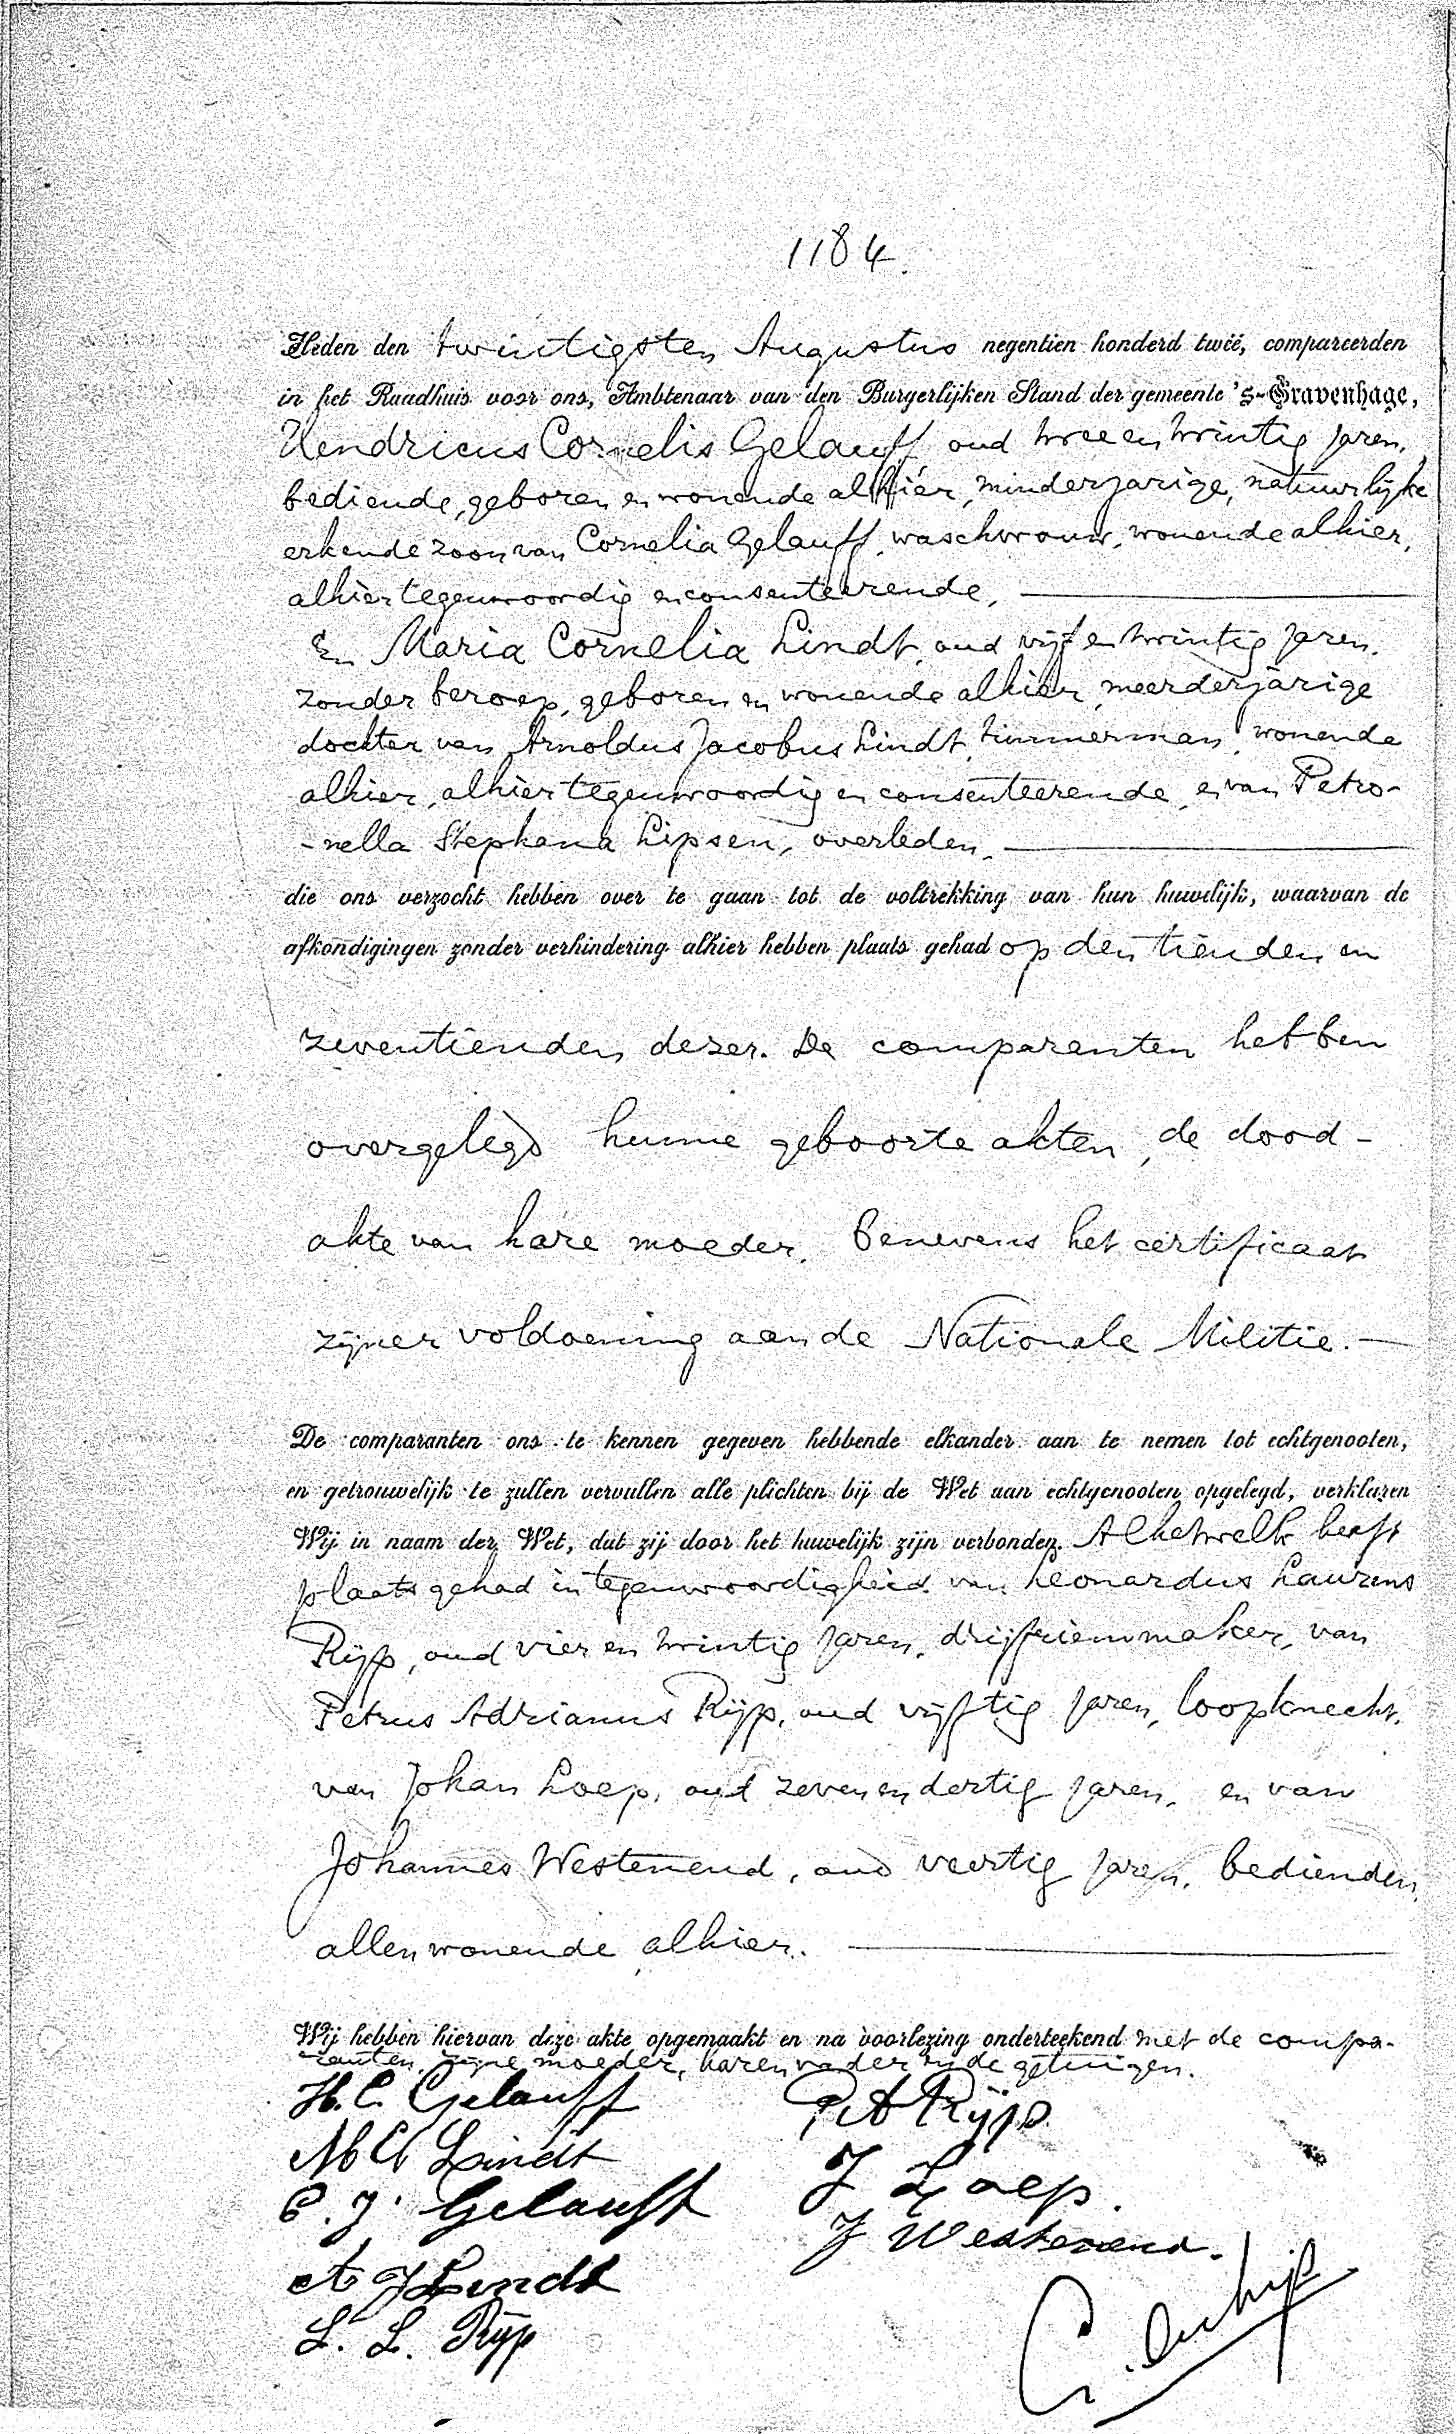 1184.
Heden den twintigsten Augustus negentien honderd twee, compareerden
in het Raadhuis voor ons, Ambtenaar van den Burgerlijken Stand der gemeente 's-Gravenhage,
Hendricus Cornelis Gelauff, oud twee en twintig jaren,
bediende, geboren en wonende alhier, minderjarige, natuurlijke
erkende zoon van Cornelia Gelauff, waschvrouw, wonende alhier,
alhier tegenwoordig en consenteerende,
En Maria Cornelia Lindt, oud vijf en twintig jaren.
zonder beroep, geboren en wonende alhier, meerderjarige
dochter van Arnoldus Jacobus Lindt, timmerman, wonende
alhier, alhier tegenwoordig en consenteerende, en van Petro-
-nella Stephana Lipsen, overleden,
die ons verzocht hebben over te gaan tot de voltrekking van hun huwelijk, waarvan de
afkondigingen zonder verhindering alhier hebben plaats gehad op den tienden en
zeventienden dezer. De comparenten hebben
overgelegd hunne geboorte akten, de dood-
akte van hare moeder, benevens het certificaat
zijner voldoening aan de Nationale Militie.
De comparanten ons te kennen gegeven hebbende elkander aan te nemen tot echtgenooten,
en getrouwelijk te zullen vervullen alle plichten bij de Wet aan echtgenooten opgelegd, verklaren
Wij in naam der Wet, dat zij door het huwelijk zijn verbonden. Al hetwelk heeft
plaats gehad in tegenwoordigheid van Leonardus Laurens
Rijp, oud vier en twintig jaren, drijfriemmaker, van
Petrus Adrianus Rijp, oud vijftig jaren, loopknecht,
van Johan Loep, oud zeven en dertig jaren, en van
Johannes Westenend, oud veertig jaren, bedienden,
allen wonende alhier.
Wij hebben hiervan deze akte opgemaakt en na voorlezing onderteekend met de compa-
ranten, zijne moeder, haren vader en de getuigen.
H. C. Gelauff
M C Lindt
C. J. Gelauff
A J Lindt
L. L. Rijp
P A Rijp
J Loep.
J Westenend.